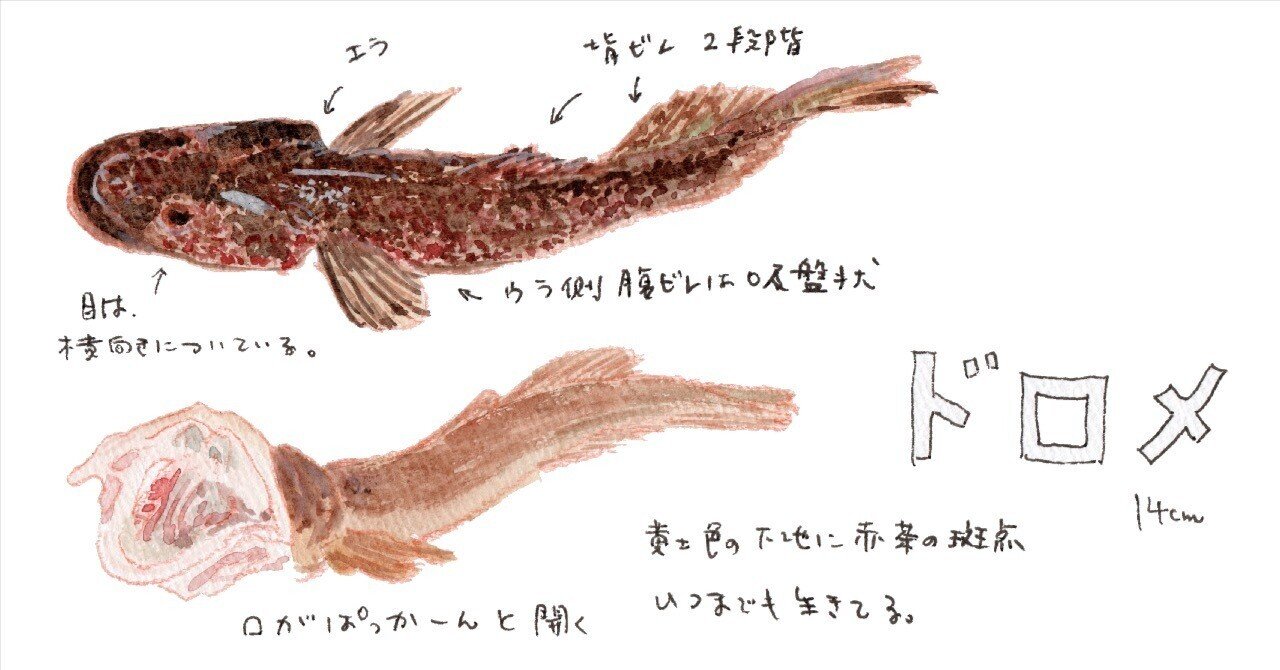 エラ
背ビレ 2段階
目は、
横向きについている。
ウラ側 腹ビレは吸盤状
ドロメ
14cm
黄土色の下地に赤茶の斑点
いつまでも生きてる。
口がぱっかーんと開く